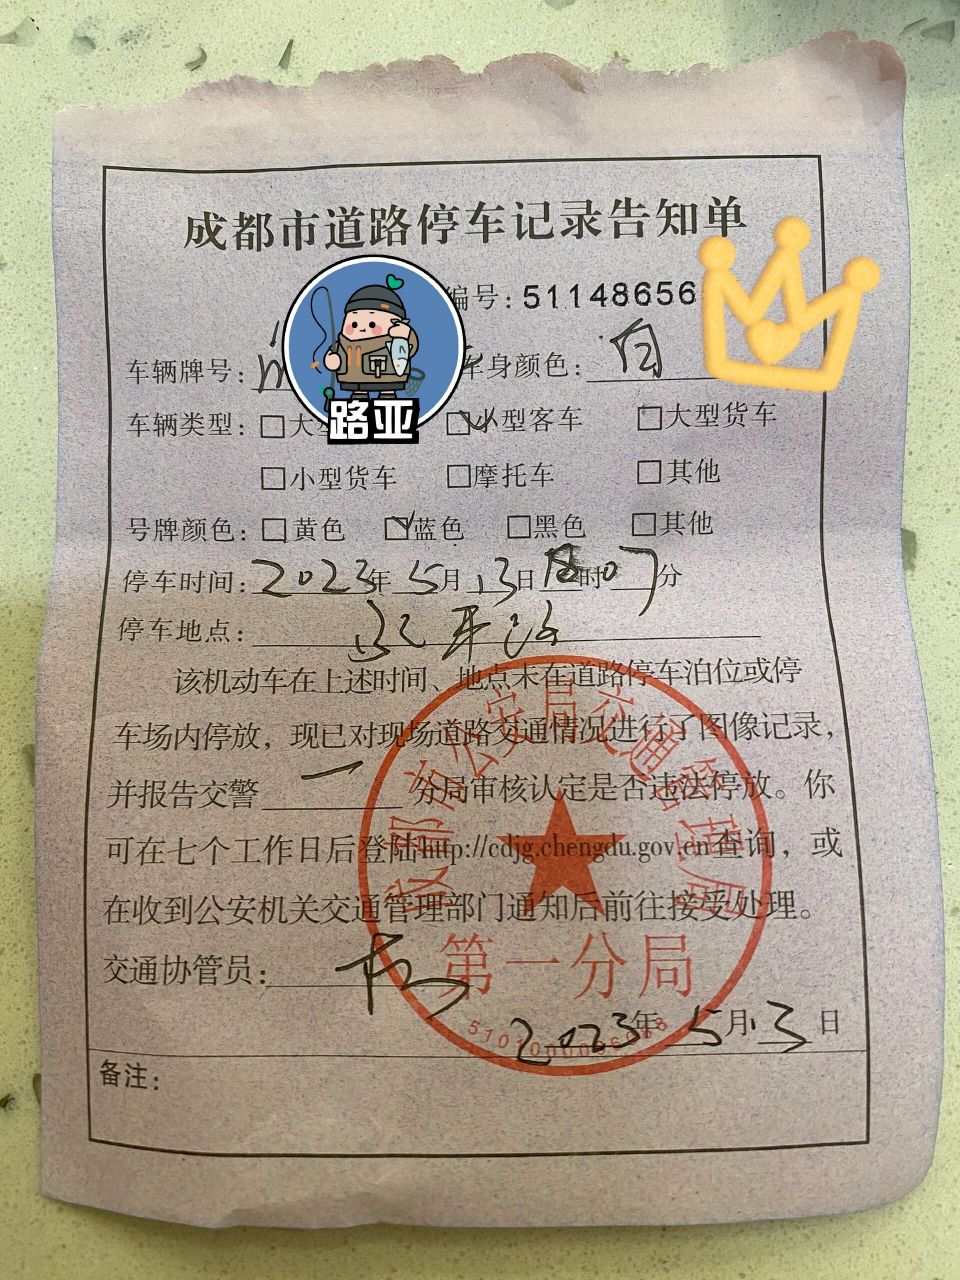 成都市道路停车记录告知单
编号：51148656
车辆牌号： 车身颜色：白
路亚
车辆类型：□大 ☑小型客车 □大型货车
□小型货车 □摩托车 □其他
号牌颜色：□黄色 ☑蓝色 □黑色 □其他
停车时间：2023年5月13日18时07分
停车地点：
该机动车在上述时间、地点未在道路停车泊位或停
车场内停放，现已对现场道路交通情况进行了图像记录，
并报告交警 一 分局审核认定是否违法停放。你
可在七个工作日后登陆http://cdjg.chengdu.gov.cn查询，或
在收到公安机关交通管理部门通知后前往接受处理。
交通协管员：
成都市公安局交通管理局
第一分局
2023年5月13日
备注：